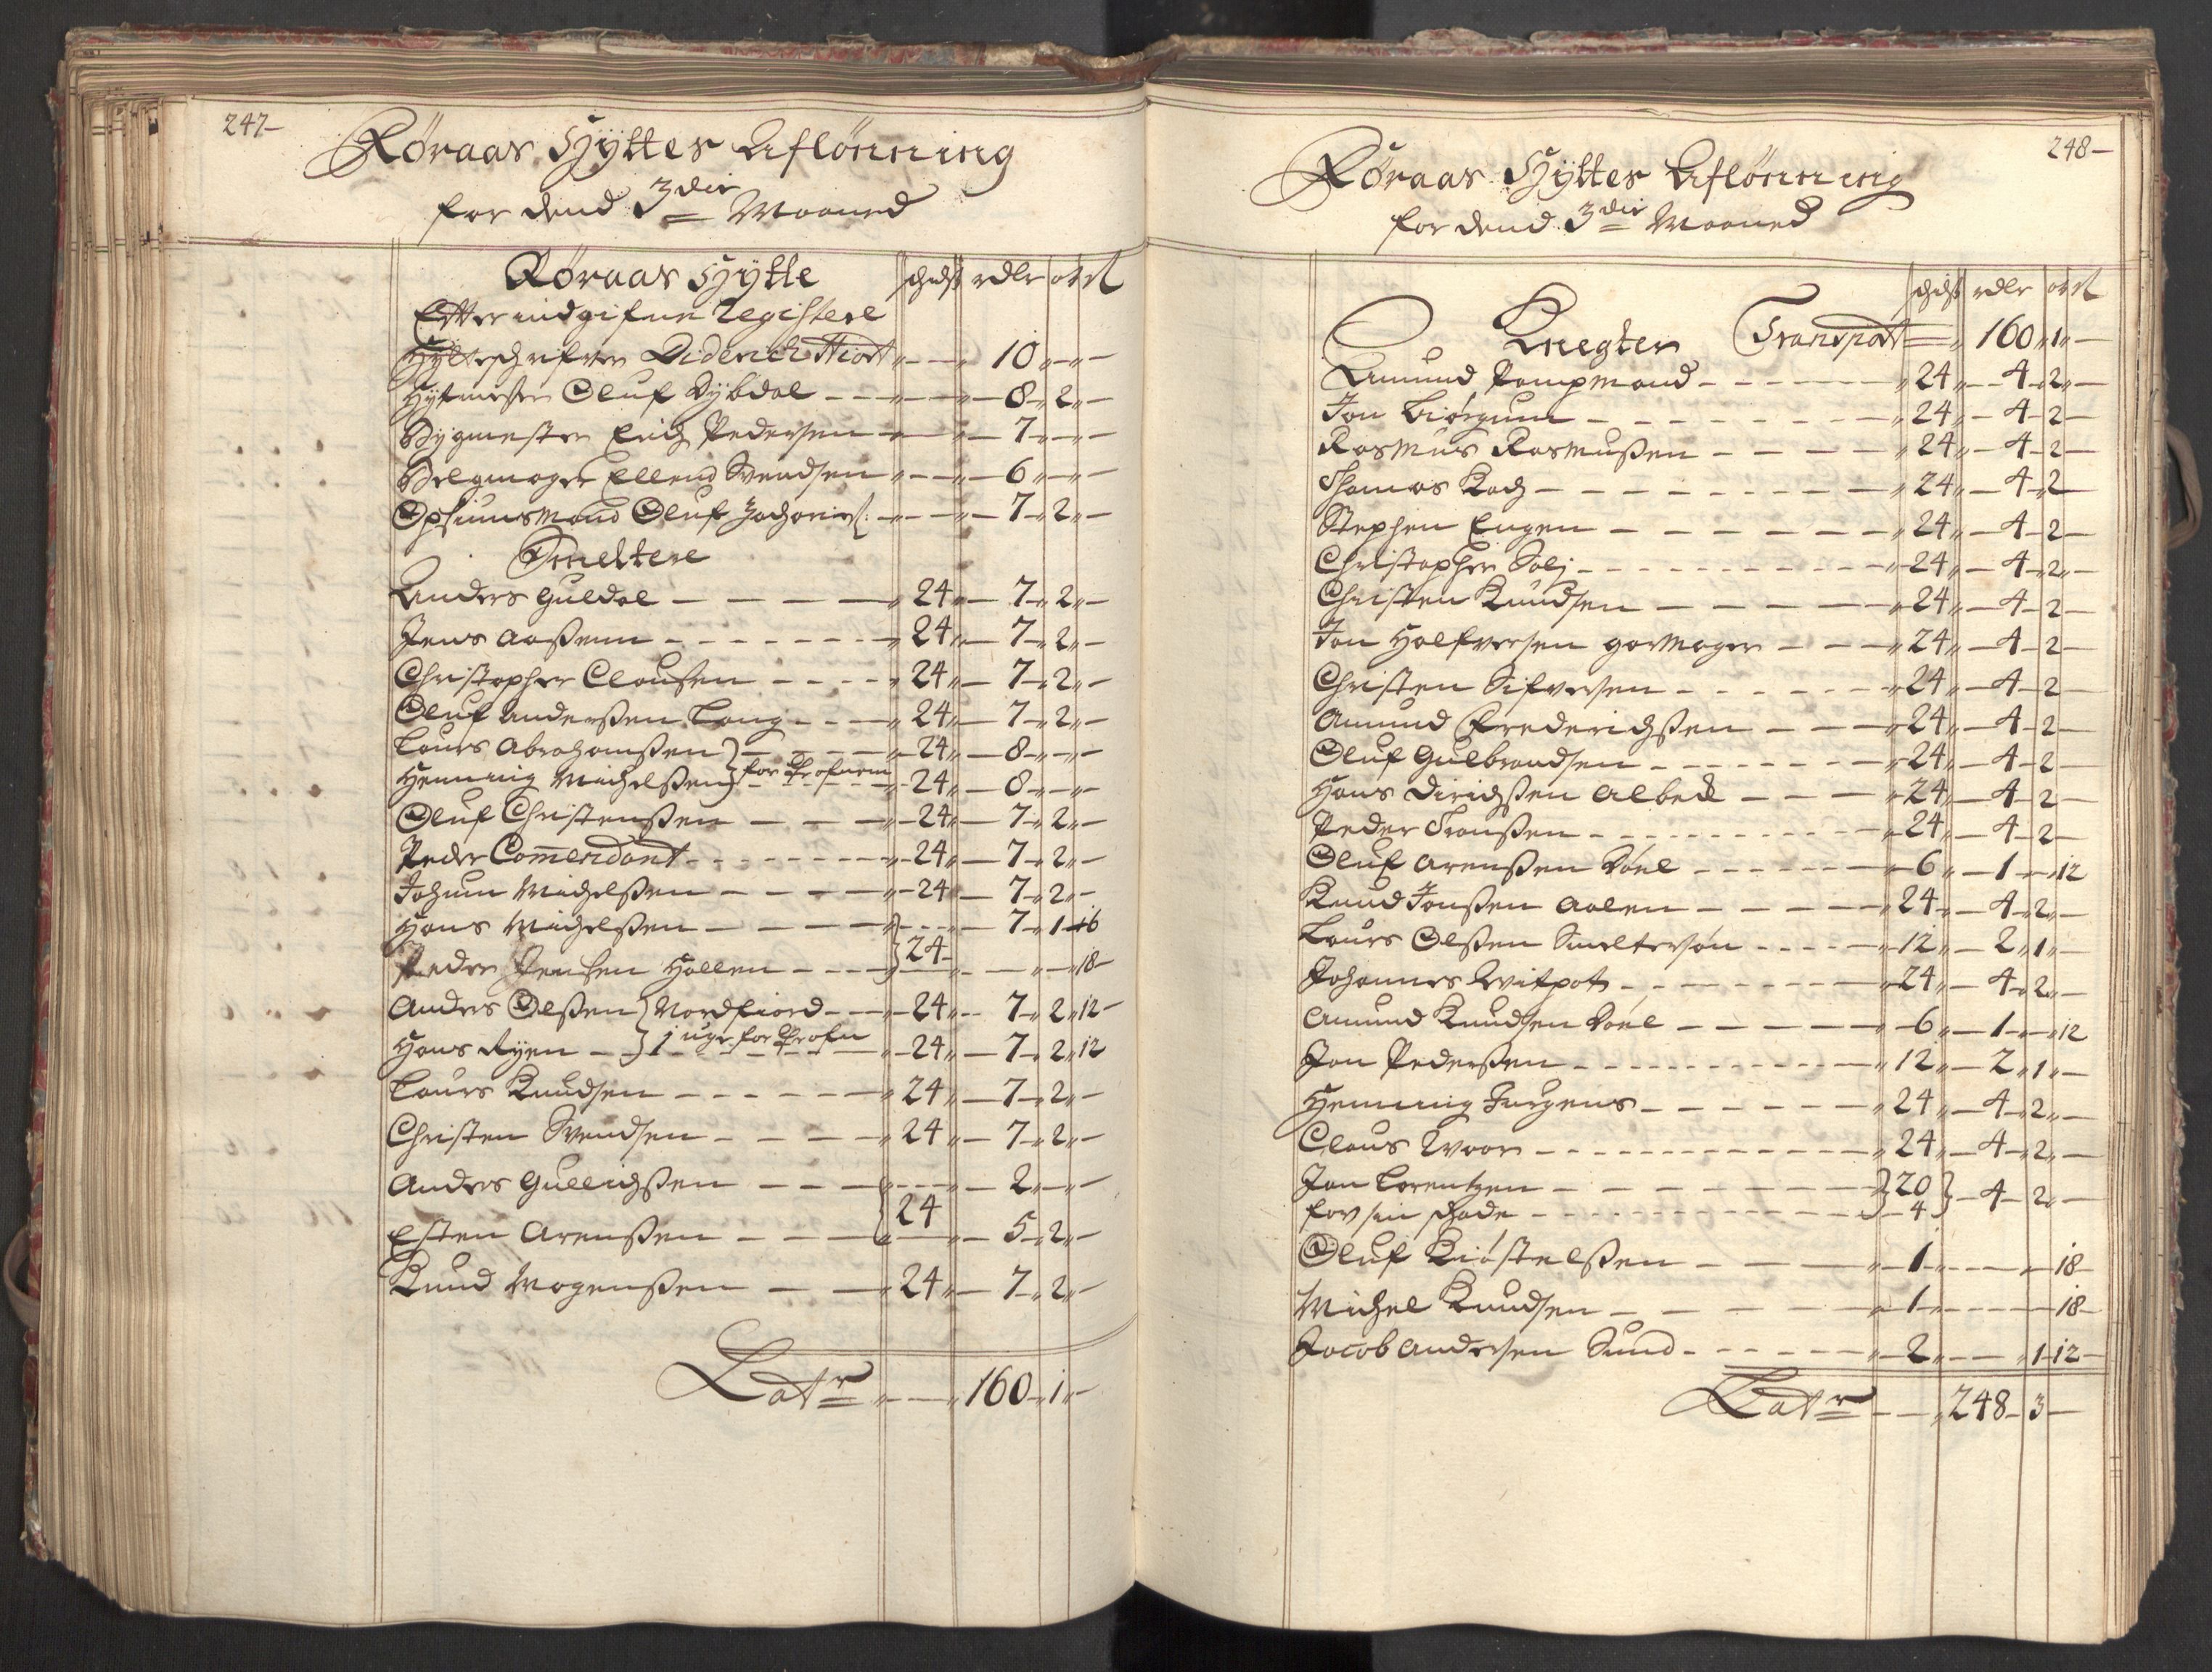 247-
Røraas Hyttes Aflönning
for dend 3die Maaned
Røraas Hytte schicht rdlr ort
Efter indgifne Registere
Hytteschrifver Diderich Hiort 10
Hytmester Oluf Dybdal 8 2
Bygmester Erich Pedersen 7
Belgmager Ellend Svendsen 6
Opsiunsmand Oluf Zacharies: 7 2
Smeltere
Anders Guldal 24 7 2
Jens Aaßenn 24 7 2
Christopher Clausen 24 7 2
Oluf Anderßen Lang 24 7 2
Laurs Abrahamßen } 24 8
Henning Michelßen } for Profven 24 8
Oluf Christenßen 24 7 2
Peder Commendant 24 7 2
Johum Michelßen 24 7 2
Hans Michelßen } 7 1 16
Peder Jensen Hallen } 24 18
Anders Olßen } Nordfiord 24 7 2 12
Hans Ryen } 1 uge for Profn 24 7 2 12
Laurs Knudsen 24 7 2
Christen Svendsen 24 7 2
Anders Gullichßen { 2
Esten Arenßen { 24 5 2
Knud Mogenßen 24 7 2
Latr 160 1
248-
Røraas Hyttes Aflönning
for dend 3die Maaned
schicht rdlr ort
Knegter Transport 160 1
Amund Pampmand 24 4 2
Jon Biörgum 24 4 2
Rasmus Rasmußen 24 4 2
Thomas Koch 24 4 2
Stephen Engen 24 4 2
Christopher Solj 24 4 2
Christen Knudsen 24 4 2
Jon Halfversen garmager 24 4 2
Christen Sifversen 24 4 2
Amund Frederichßen 24 4 2
Oluf Gulbrandsen 24 4 2
Hans Dirichßen Albeck 24 4 2
Peder Tronßen 24 4 2
Oluf Arenßen Döel 6 1 12
Knud Jonßen Aalen 24 4 2
Laurs Olßen Smeltersön 12 2 1
Johannes Qvitpot 24 4 2
Amund Knudsen Döel 6 1 12
Jon Pederßen 12 2 1
Henning Jurgens 24 4 2
Claus Woor 24 4 2
Jon Lorentzen } 20 } 4 2
for sin schade } 4 }
Oluf Kiöstelßen 1 18
Michel Knudsen 1 18
Jacob Andersen Sund 2 1 12
Latr 248 3